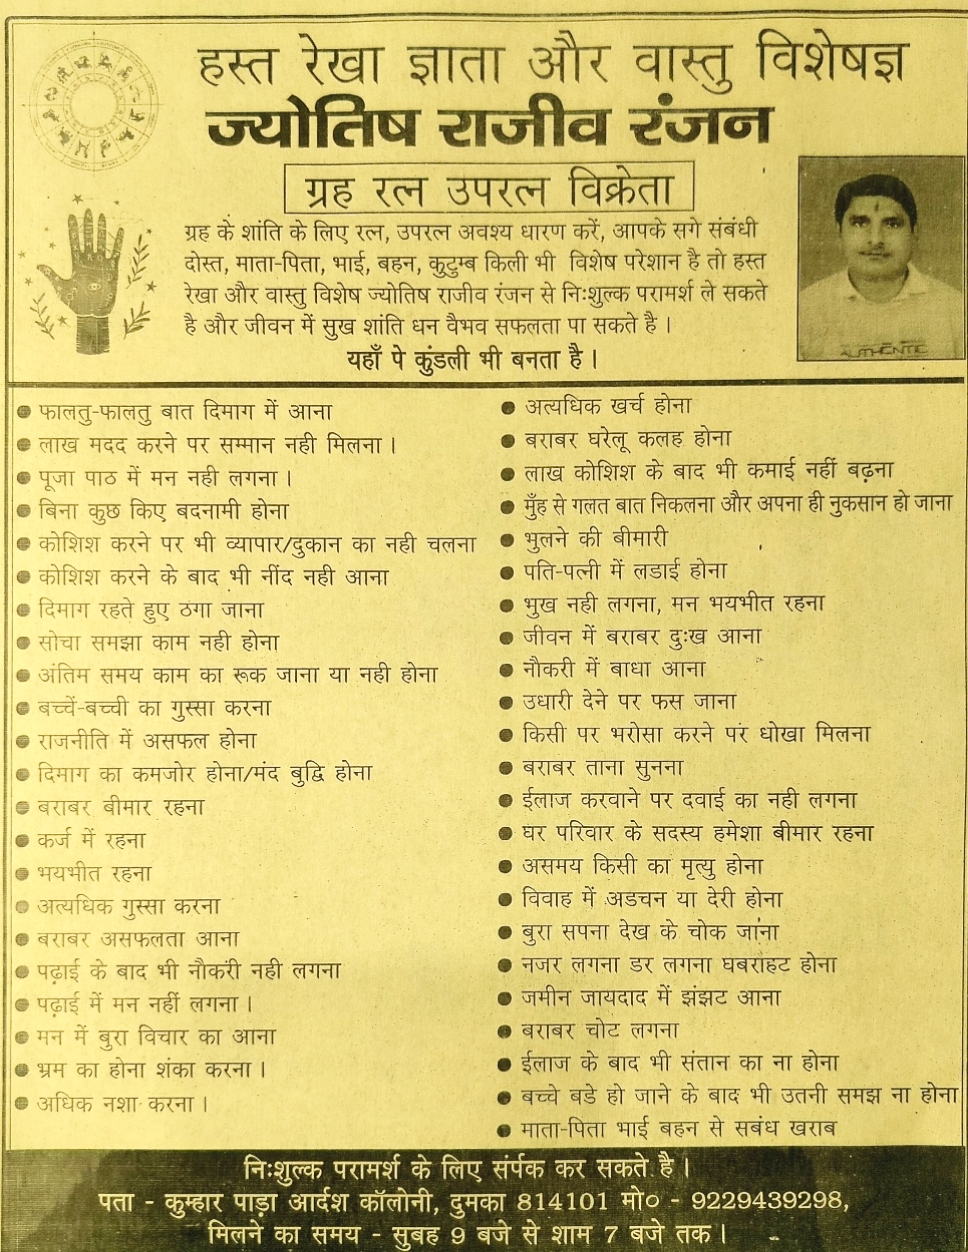 हस्त रेखा ज्ञाता और वास्तु विशेषज्ञ
ज्योतिष राजीव रंजन
ग्रह रत्न उपरत्न विक्रेता
ग्रह के शांति के लिए रत्न, उपरत्न अवश्य धारण करें, आपके सगे संबंधी
दोस्त, माता-पिता, भाई, बहन, कुटुम्ब किली भी विशेष परेशान है तो हस्त
रेखा और वास्तु विशेष ज्योतिष राजीव रंजन से निःशुल्क परामर्श ले सकते
है और जीवन में सुख शांति धन वैभव सफलता पा सकते है।
यहाँ पे कुंडली भी बनता है।
AUTHENTIC
● फालतु-फालतु बात दिमाग में आना
● लाख मदद करने पर सम्मान नही मिलना।
● पूजा पाठ में मन नही लगना।
● बिना कुछ किए बदनामी होना
● कोशिश करने पर भी व्यापार/दुकान का नही चलना
● कोशिश करने के बाद भी नींद नही आना
● दिमाग रहते हुए ठगा जाना
● सोचा समझा काम नही होना
● अंतिम समय काम का रूक जाना या नही होना
● बच्चें-बच्ची का गुस्सा करना
● राजनीति में असफल होना
● दिमाग का कमजोर होना/मंद बुद्वि होना
● बराबर बीमार रहना
● कर्ज में रहना
● भयभीत रहना
● अत्यधिक गुस्सा करना
● बराबर असफलता आना
● पढ़ाई के बाद भी नौकरी नही लगना
● पढ़ाई में मन नहीं लगना।
● मन में बुरा विचार का आना
● भ्रम का होना शंका करना।
● अधिक नशा करना।
● अत्यधिक खर्च होना
● बराबर घरेलू कलह होना
● लाख कोशिश के बाद भी कमाई नहीं बढ़ना
● मुँह से गलत बात निकलना और अपना ही नुकसान हो जाना
● भुलने की बीमारी
● पति-पत्नी में लडाई होना
● भुख नही लगना, मन भयभीत रहना
● जीवन में बराबर दुःख आना
● नौकरी में बाधा आना
● उधारी देने पर फस जाना
● किसी पर भरोसा करने पर धोखा मिलना
● बराबर ताना सुनना
● ईलाज करवाने पर दवाई का नही लगना
● घर परिवार के सदस्य हमेशा बीमार रहना
● असमय किसी का मृत्यु होना
● विवाह में अडचन या देरी होना
● बुरा सपना देख के चोक जाना
● नजर लगना डर लगना घबराहट होना
● जमीन जायदाद में झंझट आना
● बराबर चोट लगना
● ईलाज के बाद भी संतान का ना होना
● बच्चे बडे हो जाने के बाद भी उतनी समझ ना होना
● माता-पिता भाई बहन से सबंध खराब
निःशुल्क परामर्श के लिए संर्पक कर सकते है।
पता - कुम्हार पाड़ा आर्दश कॉलोनी, दुमका 814101 मो० - 9229439298,
मिलने का समय - सुबह 9 बजे से शाम 7 बजे तक।